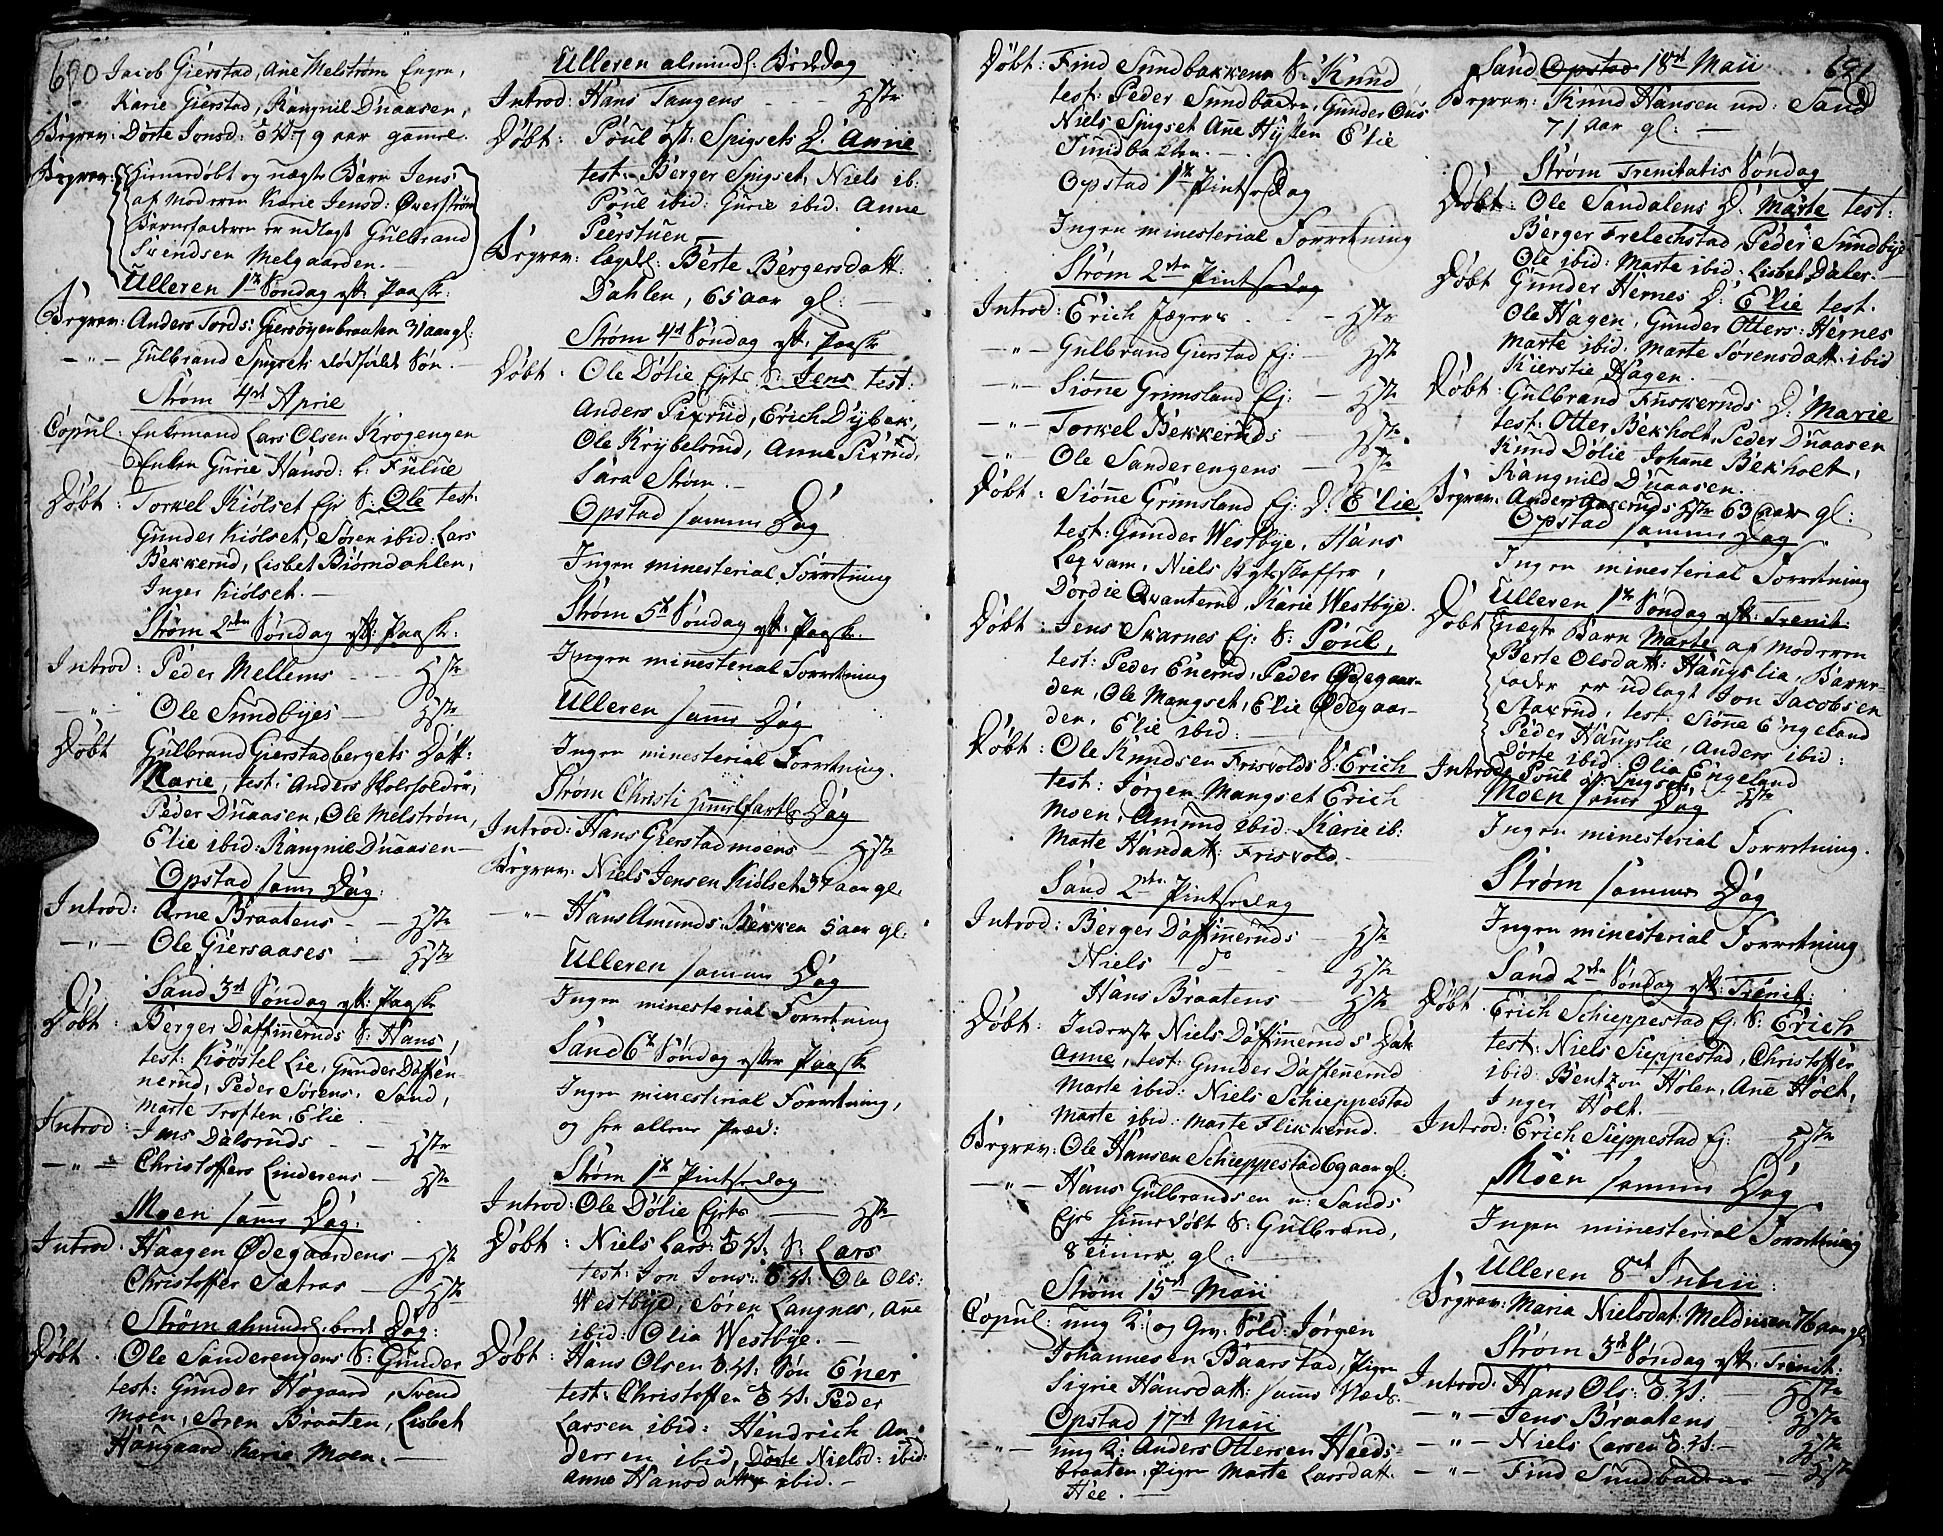 690
Jacob Gierstad, Ane Melstrøm Engen,
Karie Gierstad, Rangnil Duaasen,
Begrav: Dørte Jonsd: 79 aar gamel.
Begrav: Hiemedøbt og uægte Barn Jens
af Moderen Karie Jensd: Overstrøm
Barnefaderen er udlagt Gulbrand
Svendsen Melgaarden.
Ulleren 1te Søndag eft: Paaske:
Begrav: Anders Tords: Giersøyenbraaten 31 aar gl:
— " — Gulbrand Spigsets dødfødt Søn.
Strøm 4de April
Copul: Enkemand Lars Olsen Krogengen
Enken Gurie Hansd:
Døbt: Torkel Kiølset Ejr S: Ole test:
Gunder Kiølset, Søren ibid: Lars
Bekkerud, Lisbet Biørndahlen,
Inger Kiølset.
Strøm 2den Søndag eft: Paaske:
Introd: Peder Mellems Hstr
— " — Ole Sundbyes Hstr
Døbt Gulbrand Gierstadbergets Datt:
Marie, test: Anders
Peder Duaasen, Ole Melstrøm,
Elie ibid: Rangnil Duaasen
Opstad samme Dag:
Introd: Arne Braatens Hstr
— " — Ole Giersaases Hstr
Sand 3de Søndag eft: Paaske
Døbt: Berger Daffinneruds S: Hans,
test: Kööstel Lie, Gunder Daffin-
nerud, Peder Sørens. Sand,
Marte Troften, Elie
Introd: Jens Dalsruds Hstr
— " — Christoffers Linderens Hstr
Moen samme Dag:
Introd: Haagen Ødegaardens Hstr
Christoffer Sætras Hstr
Strøm almindel: bede Dag:
Døbt. Ole Sanderengens S: Gunder
test: Gunder Høgaard, Svend
Moen, Søren Braaten, Lisbet
Haugaard Karie Moen.
Ulleren almindel: Bededag
Introd: Hans Tangens Hstr
Døbt: Poul øst: Spigsets D: Anne
test: Berger Spigset, Niels ib:
Poul ibid: Gurie ibid: Anne
Peerstuen
Begrav: Berte Bergersdatt:
Dahlen, 65 aar gl:
Strøm 4de Søndag eft: Paaske
Døbt: Ole Dølie Ejers S: Jens test:
Anders Pixrud, Erich Dybek,
Ole Krybelsrud, Anne Pixrud,
Sara Strøm.
Opstad samme Dag
Ingen ministerial Forretning
Strøm 5te Søndag eft: Paaske:
Ingen ministerial Forretning
Ulleren samme Dag
Ingen ministerial Forretning.
Strøm Christi Himmelfarts Dag
Introd: Hans Gierstadmoens Hstr
Begrav: Niels Jensen Kiølset 37 aar gl:
— " — Hans Amunds: Bekken 5 aar gl:
Ulleren samme Dag
Ingen ministerial Forretning
Sand 6te Søndag efter Paaske
Ingen ministerial Forretning,
og ey allene Præd:
Strøm 1te Pintsedag
Introd: Ole Dølie Ejers Hstr
Døbt: Niels Lars: S: Lars
test: Jon Jons: Ole Ols:
Westbye, Søren Langnes, Ane
ibid: Olia Westbye.
Døbt: Hans Olsen Søn Ener
test: Christoffen Peder
Larsen ibid: Hendrich An-
dersen ibid, Dørte Nielsd: ibid:
Anne Hansdatter ibid.
Døbt: Find Sundbakkens S: Knud
test: Peder Sundbakken, Gunder Ous
Niels Spigset Ane Hytten Elie
Sundbakken.
Opstad 1te Pintsedag
Ingen ministerial Forretning
Strøm 2den Pintsedag
Introd: Erich Jægers Hstr
— " — Gulbrand Gierstad Ej: Hstr
— " — Siønne Grimsland Ej: Hstr
— " — Torkel Bekkeruds Hstr
— " — Ole Sanderengens Hstr
Døbt: Siønne Grimsland Ej: D: Elie
test: Gunder Westbye, Hans
Leqvam, Niels
Dordie Qvanterud, Karie Westbye.
Døbt: Jens Skarnes Ej: S: Poul,
test: Peder Enerud, Peder Ødegaar-
den, Ole Mangset, Elie Ødegaar-
den, Elie ibid:
Døbt: Ole Knudsen Frisvolds S: Erich
test: Jørgen Mangset Erich
Moen, Amund ibid: Karie ib:
Marte Hansdatt: Frisvold.
Sand 2den Pintsedag
Introd: Berger Daffinneruds Hstr
Niels do Hstr
Hans Braatens Hstr
Døbt: Inderste Niels Daffinneruds Dat:
Anne, test: Gunder Daffinnerud
Marte ibid: Niels Schieppestad
Marte ibid: Marte Flikkerud.
Begrav: Ole Hansen Schieppestad 69 aar gl:
— " — Hans Gulbrandsen n: Sands
Ejers hiemedøbt S: Gulbrand,
8 timer gl:
Strøm 15de Maii
Copul: ung K: og Grv: Sold: Jørgen
Johannesen Baarstad, Pigen
Sigrie Hansdatt: samme Sted.
Opstad 17de Maii
— " — ung K: Anders Ottersen Heeds-
braaten, Pigen Marte Larsdatt:
Hee.
Sand Opstad 18de Maii
691
Begrav: Knud Hansen ned: Sand
71 aar gl:
Strøm Trenitatis Søndag
Døbt: Ole Sandalens D: Marte test:
Berger Frelechstad Peder Sundbye
Ole ibid: Marte ibid: Lisbet Dales.
Døbt Gunder Hernes D: Elie test.
Ole Hagen, Gunder Otters: Hernes
Marte ibid, Marte Sørensdatt: ibid
Kierstie Hagen.
Døbt: Gulbrand Fuskeruds D: Marie
test: Otter Bekholt, Peder Duaasen
Knud Dølie Johane Bekholt,
Rangnild Duaasen.
Begrav: Anders Hstr 63 aar gl:
Opstad samme Dag
Ingen ministerial Forretning
Ulleren 1te Søndag eft: Trenit:
Døbt uægte Barn Marte af Moderen
Berte Olsdatt: Haugslia, Barne-
fader er udlagt Jon Jacobsen
Staxrud, test: Siønne Engeland
Peder Haugslie, Anders ibid:
Dørte ibid: Olia Engeland
Introd: Poul øst: Spigsets Hstr
Moen samme Dag
Ingen ministerial Forretning.
Strøm samme Dag
Ingen ministerial Forretning
Sand 2den Søndag eft: Trenit:
Døbt Erich Schieppestad Ej: S: Erich
test: Niels Sieppestad, Christoffer
ibid: Bentzon Holen, Ane Holt,
Inger Holt.
Introd: Erich Sieppestad Ej: Hstr
Moen samme Dag
Ingen ministerial Forretning
Ulleren 8de Junii
Begrav: Maria Nielsdat: 76 aar gl:
Strøm 3de Søndag eft: Trenit:
Introd: Hans Ols: Hstr
— " — Jens Braatens Hstr
— " — Niels Larsen Hstr
— " — Find Sundbakkens Hstr